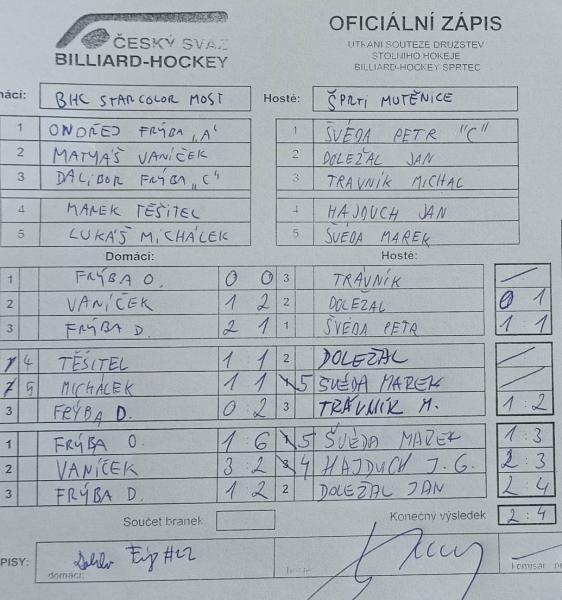 ČESKÝ SVAZ
BILLIARD-HOCKEY
OFICIÁLNÍ ZÁPIS
UTKÁNÍ SOUTĚŽE DRUŽSTEV
STOLNÍHO HOKEJE
BILLIARD-HOCKEY SPRTEC
mácí: BHC STARCOLOR MOST Hosté: ŠPRTI MUTĚNICE
1 ONDŘEJ FRÝBA "A" 1 ŠVÉDA PETR "C"
2 MATYÁŠ VANÍČEK 2 DOLEŽAL JAN
3 DALIBOR FRÝBA "C" 3 TRÁVNÍK MICHAL
4 MAREK TĚŠITEL 4 HAJDUCH JAN
5 LUKÁŠ MICHÁLEK 5 ŠVÉDA MAREK
Domácí: Hosté:
1 FRÝBA O. 0 0 3 TRÁVNÍK
2 VANÍČEK 1 2 2 DOLEŽAL 0 1
3 FRÝBA D. 2 1 1 ŠVÉDA PETR 1 1
4 TĚŠITEL 1 1 2 DOLEŽAL
5 MICHÁLEK 1 1 5 ŠVÉDA MAREK
3 FRÝBA D. 0 : 2 3 TRÁVNÍK M. 1 : 2
1 FRÝBA O. 1 : 6 5 ŠVÉDA MAREK 1 : 3
2 VANÍČEK 3 : 2 4 HAJDUCH J. G. 2 : 3
3 FRÝBA D. 1 : 2 2 DOLEŽAL JAN 2 : 4
Součet branek Konečný výsledek 2 : 4
PISY:
domácí: